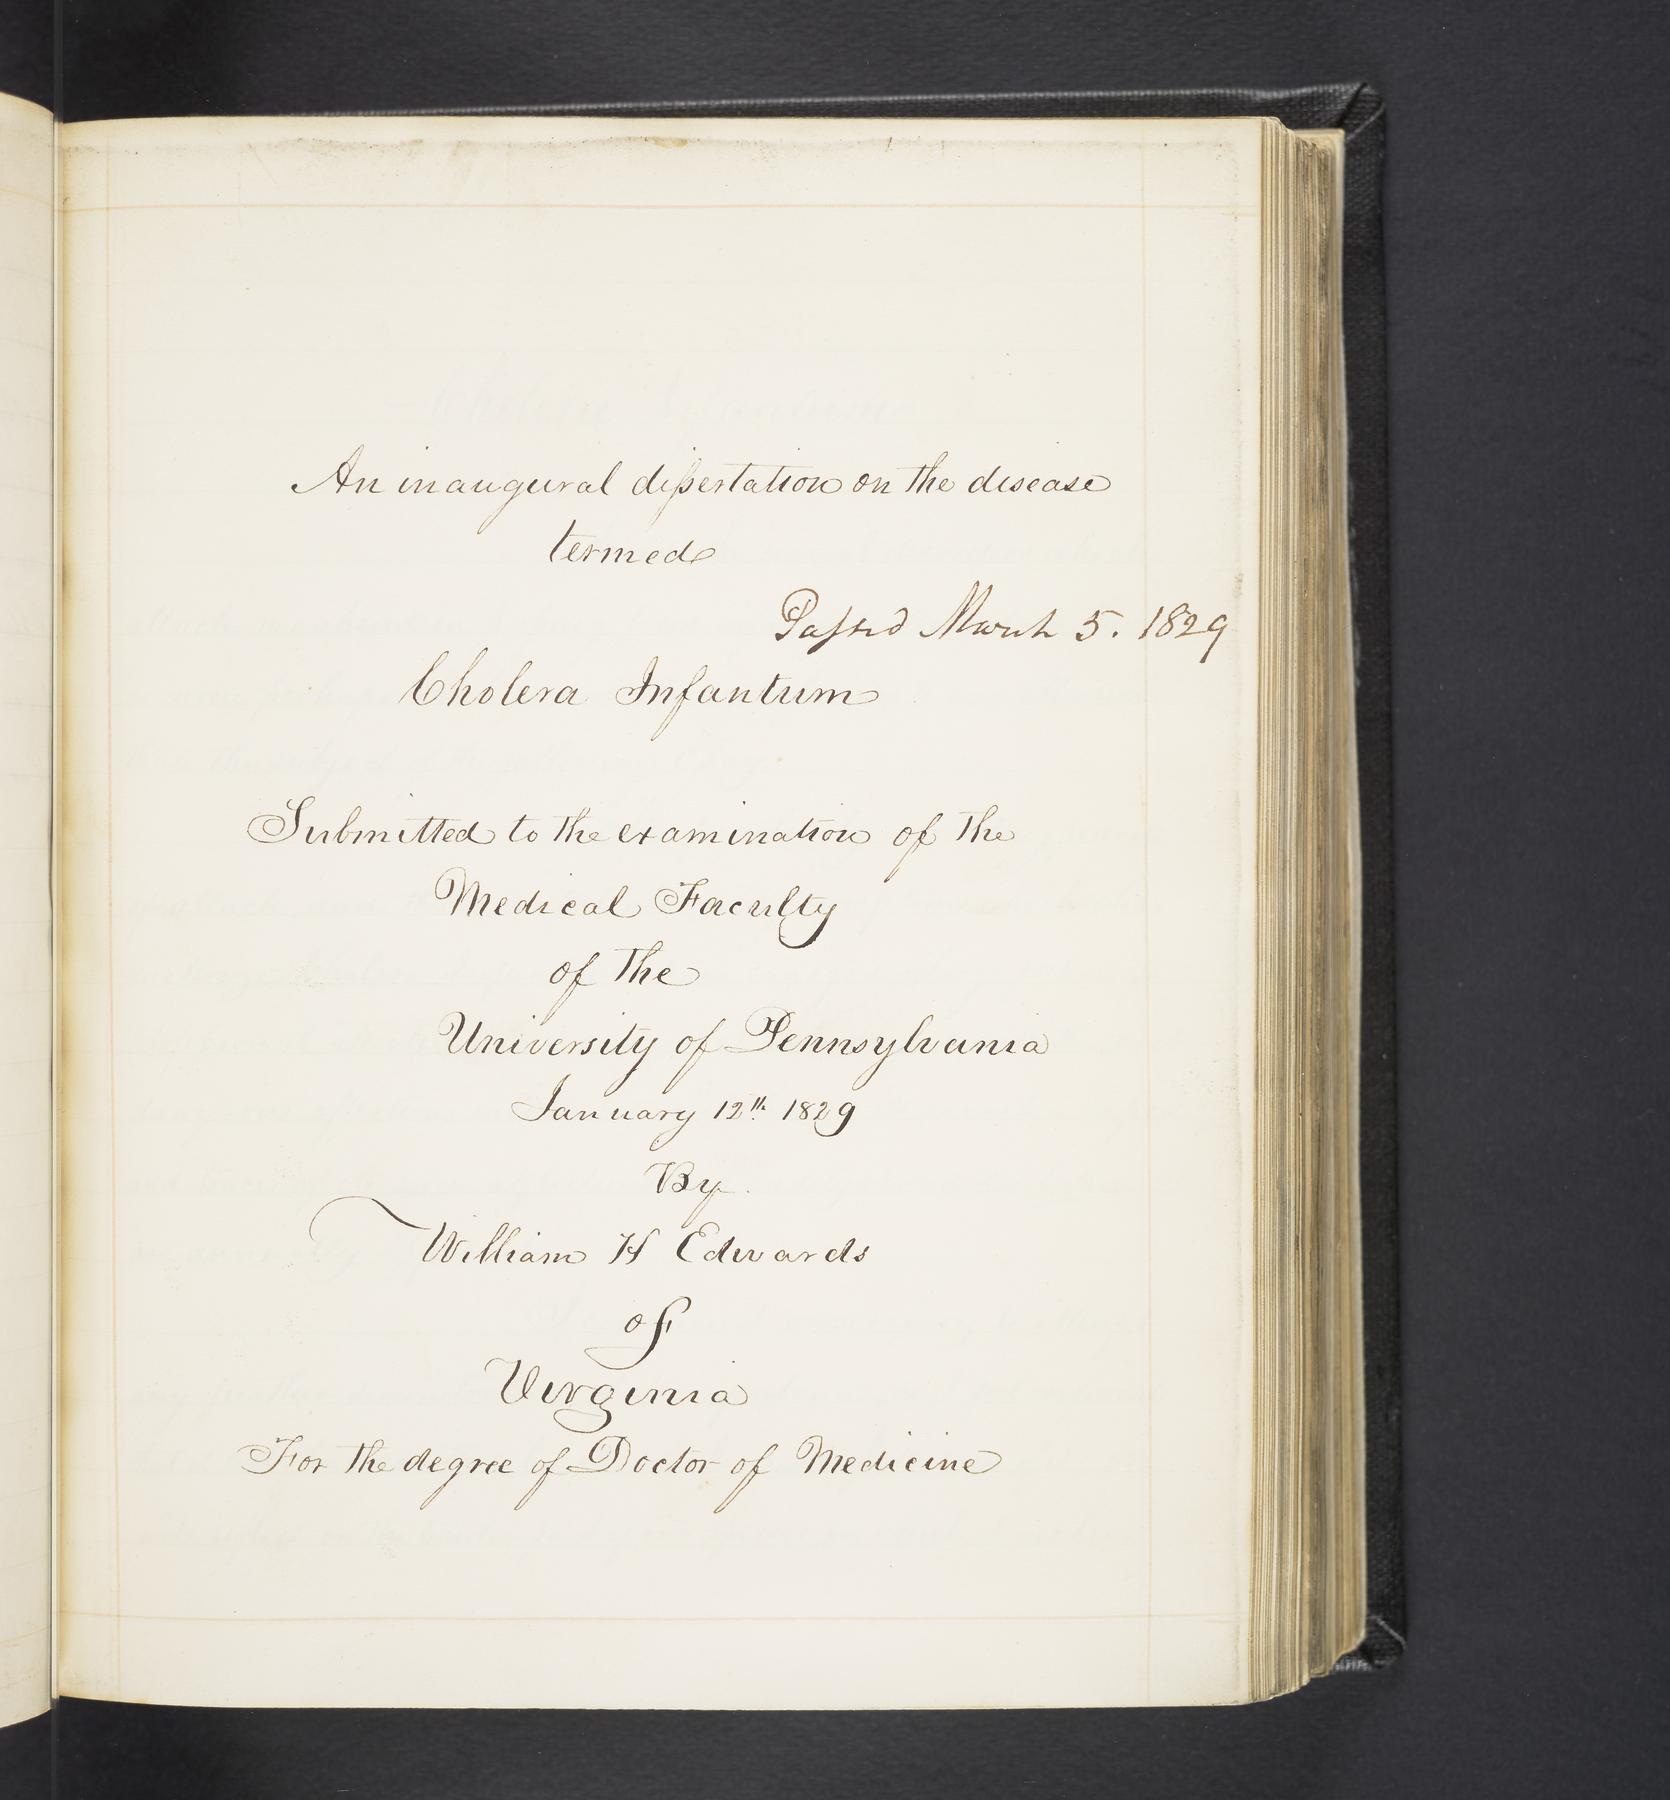 An inaugural dissertation on the disease
termed
Passed March 5. 1829
Cholera Infantum
Submitted to the examination of the
Medical Faculty
of the
University of Pennsylvania
January 12th 1829
By
William H Edwards
of
Virginia
For the degree of Doctor of Medicine